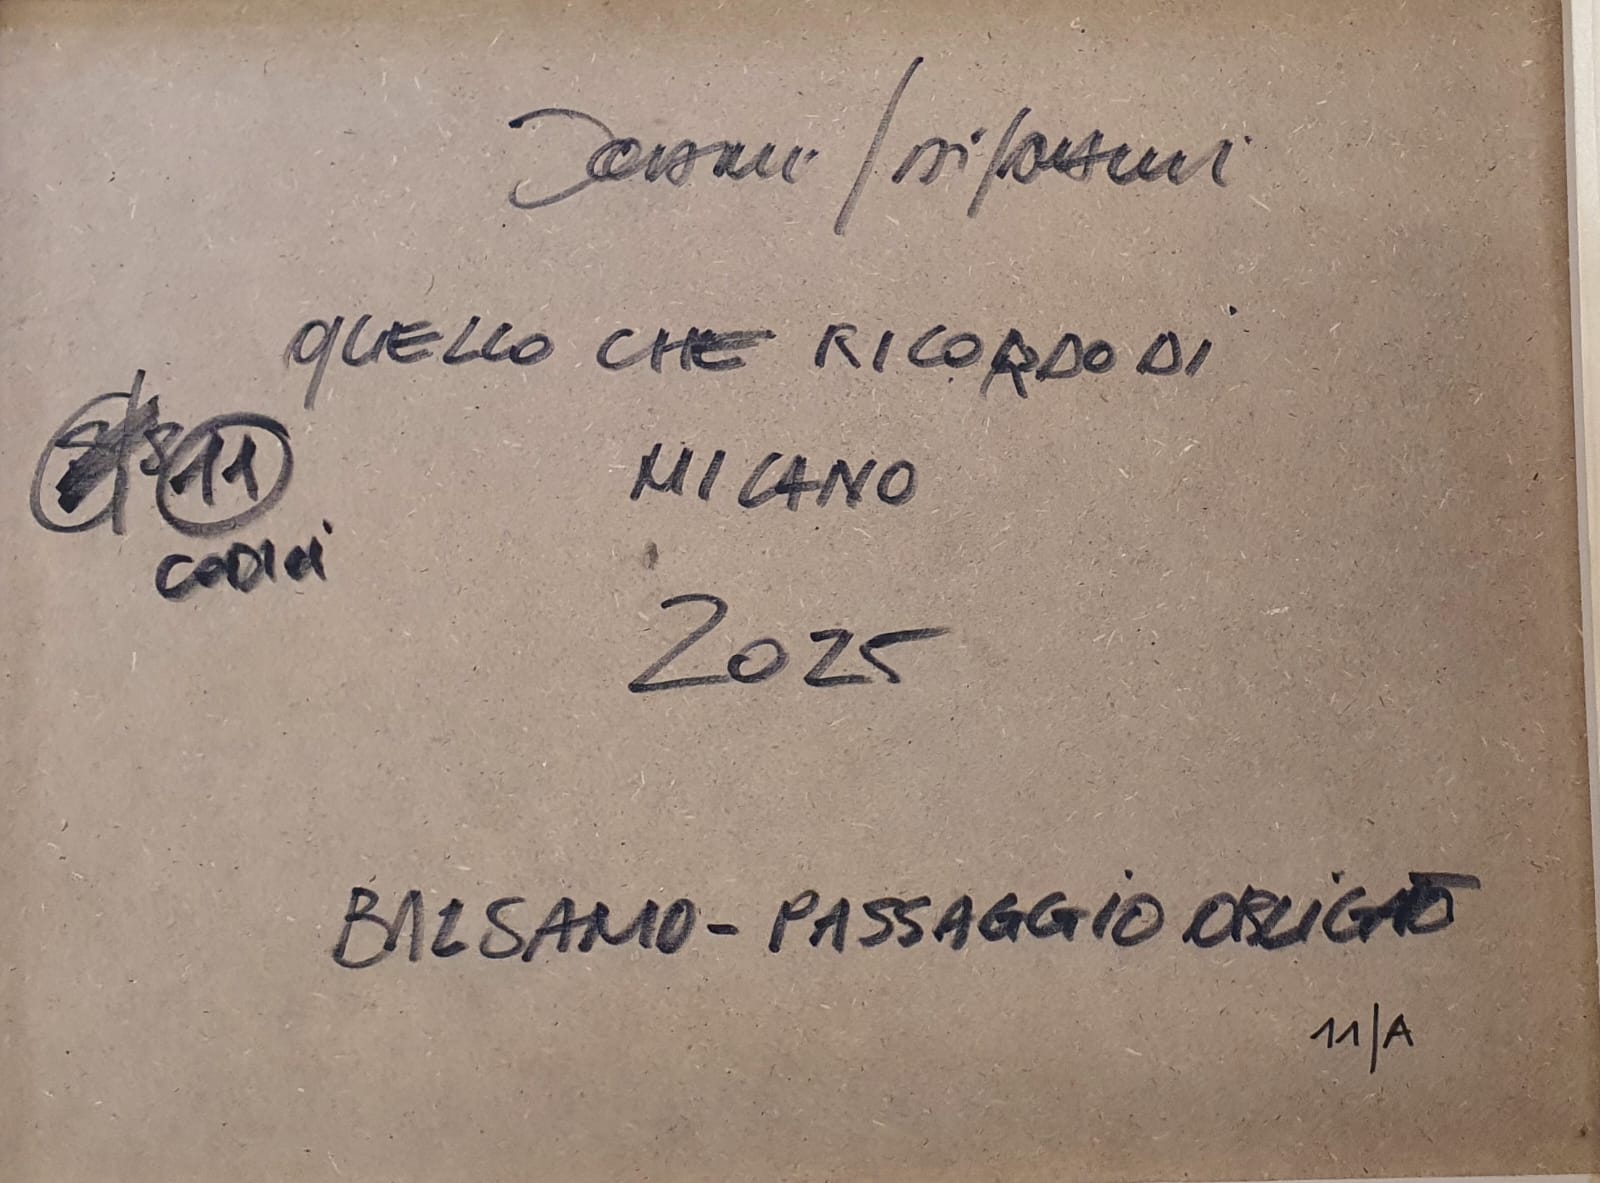 QUELLO CHE RICORDO DI
11
MILANO
CODICI
2025
BALSAMO - PASSAGGIO OBLIGATO
11/A